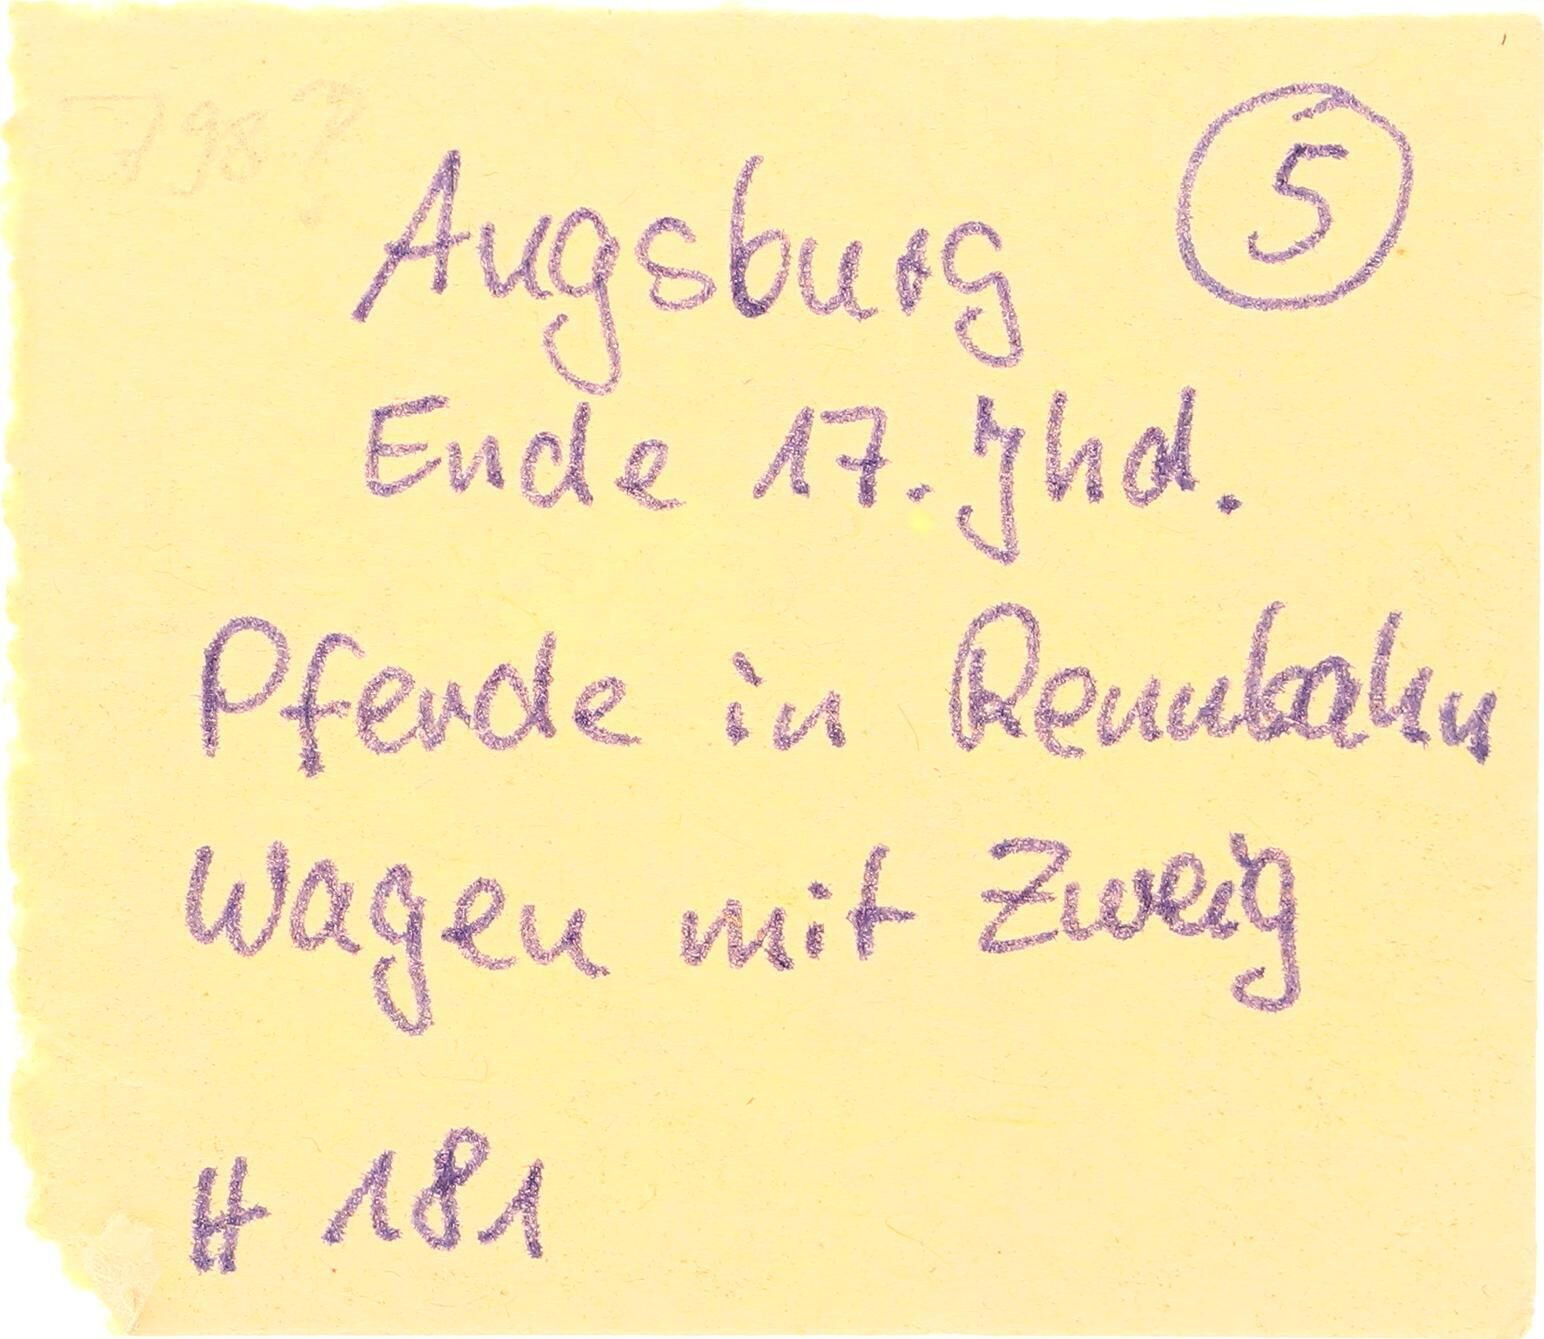 5
Augsburg
Ende 17. Jhd.
Pferde in Rennbahn
Wagen mit Zweig
H 181